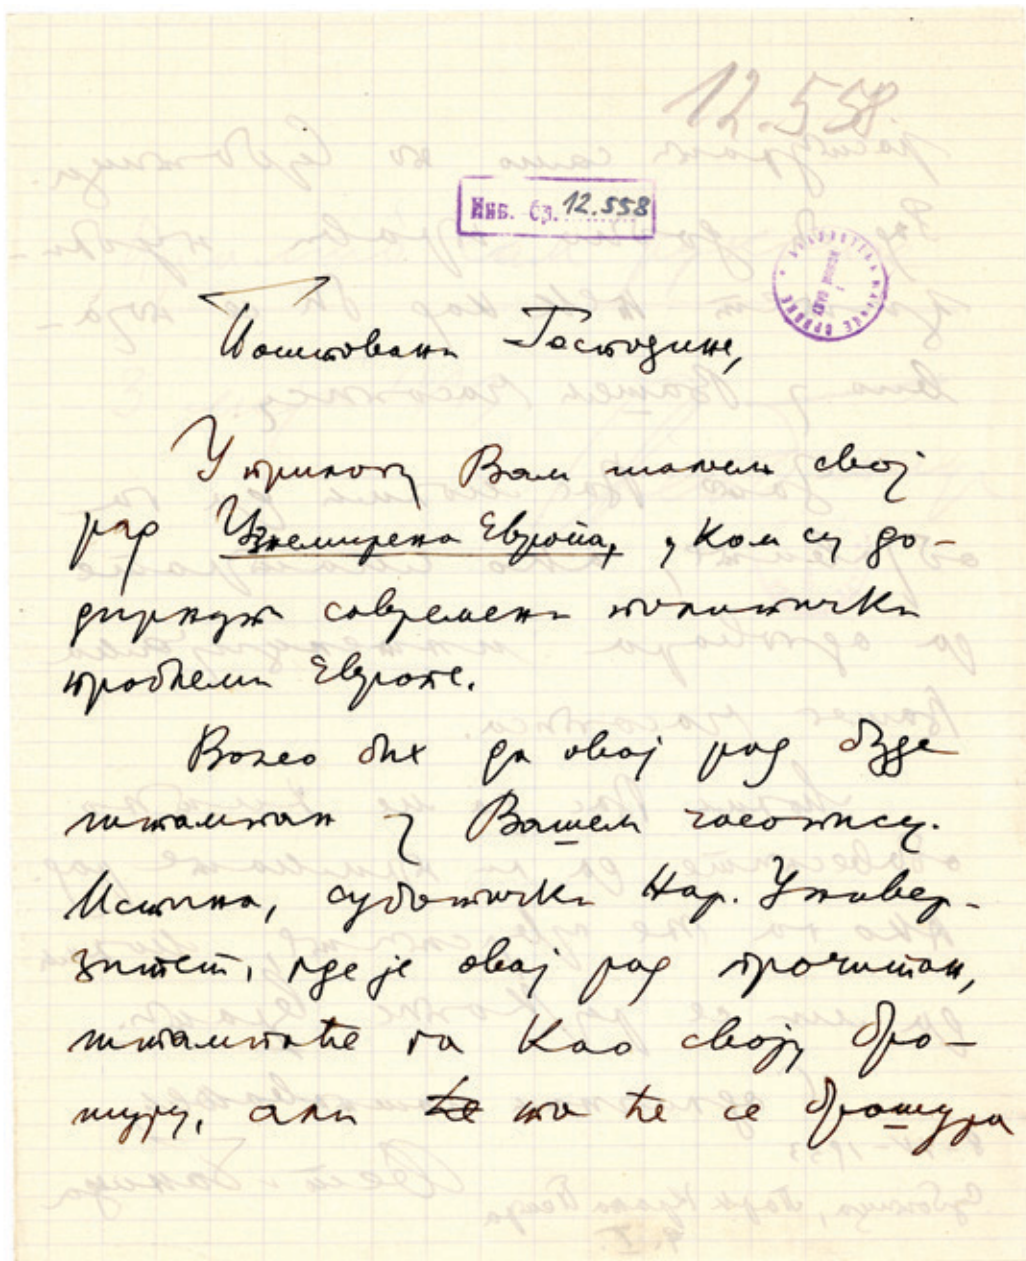 12.558.
Инв. бр. 12.558
Поштовани Господине,
У прилогу Вам шаљем свој
рад Узнемирена Европа, у ком су до-
дирнути савремени политички
проблеми Европе.
Волео бих да овај рад буде
штампан у Вашем часопису.
Истина, суботички Нар. Универ-
зитет, где је овај рад прочитан,
штампаће га као своју бро-
шуру, али ће та ће се брошура